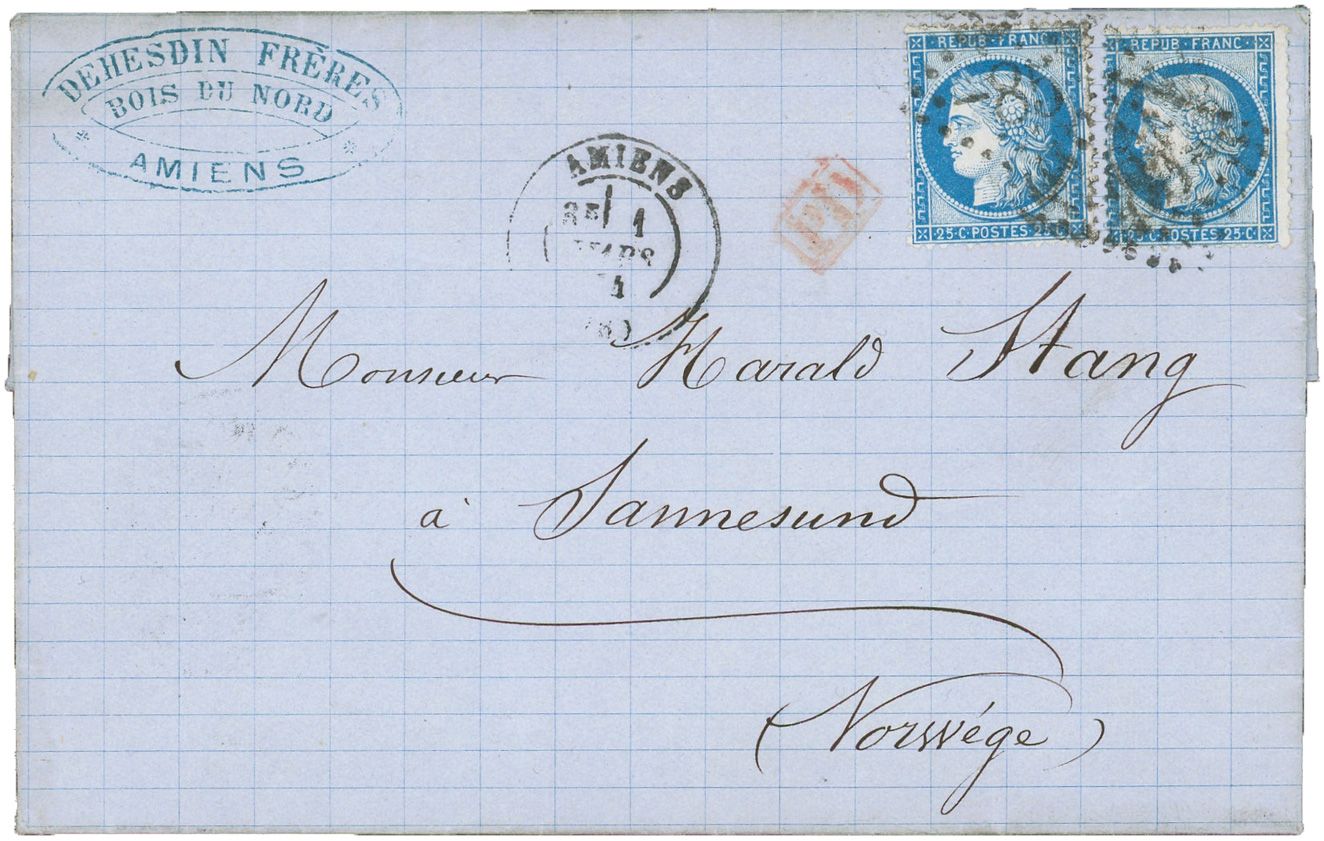 DEHESDIN FRÈRES
BOIS DU NORD
AMIENS
AMIENS
1
MARS
REPUB·FRANC·
25·C·POSTES·25·C·
REPUB·FRANC·
POSTES·25·C·
Monsieur Harald Stang
à Sannesund
(Norwége)